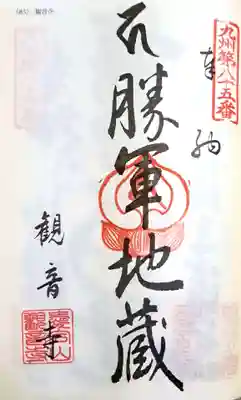 九州第八十五番
奉納
勝軍地蔵
観音寺
愛宕山
観音寺